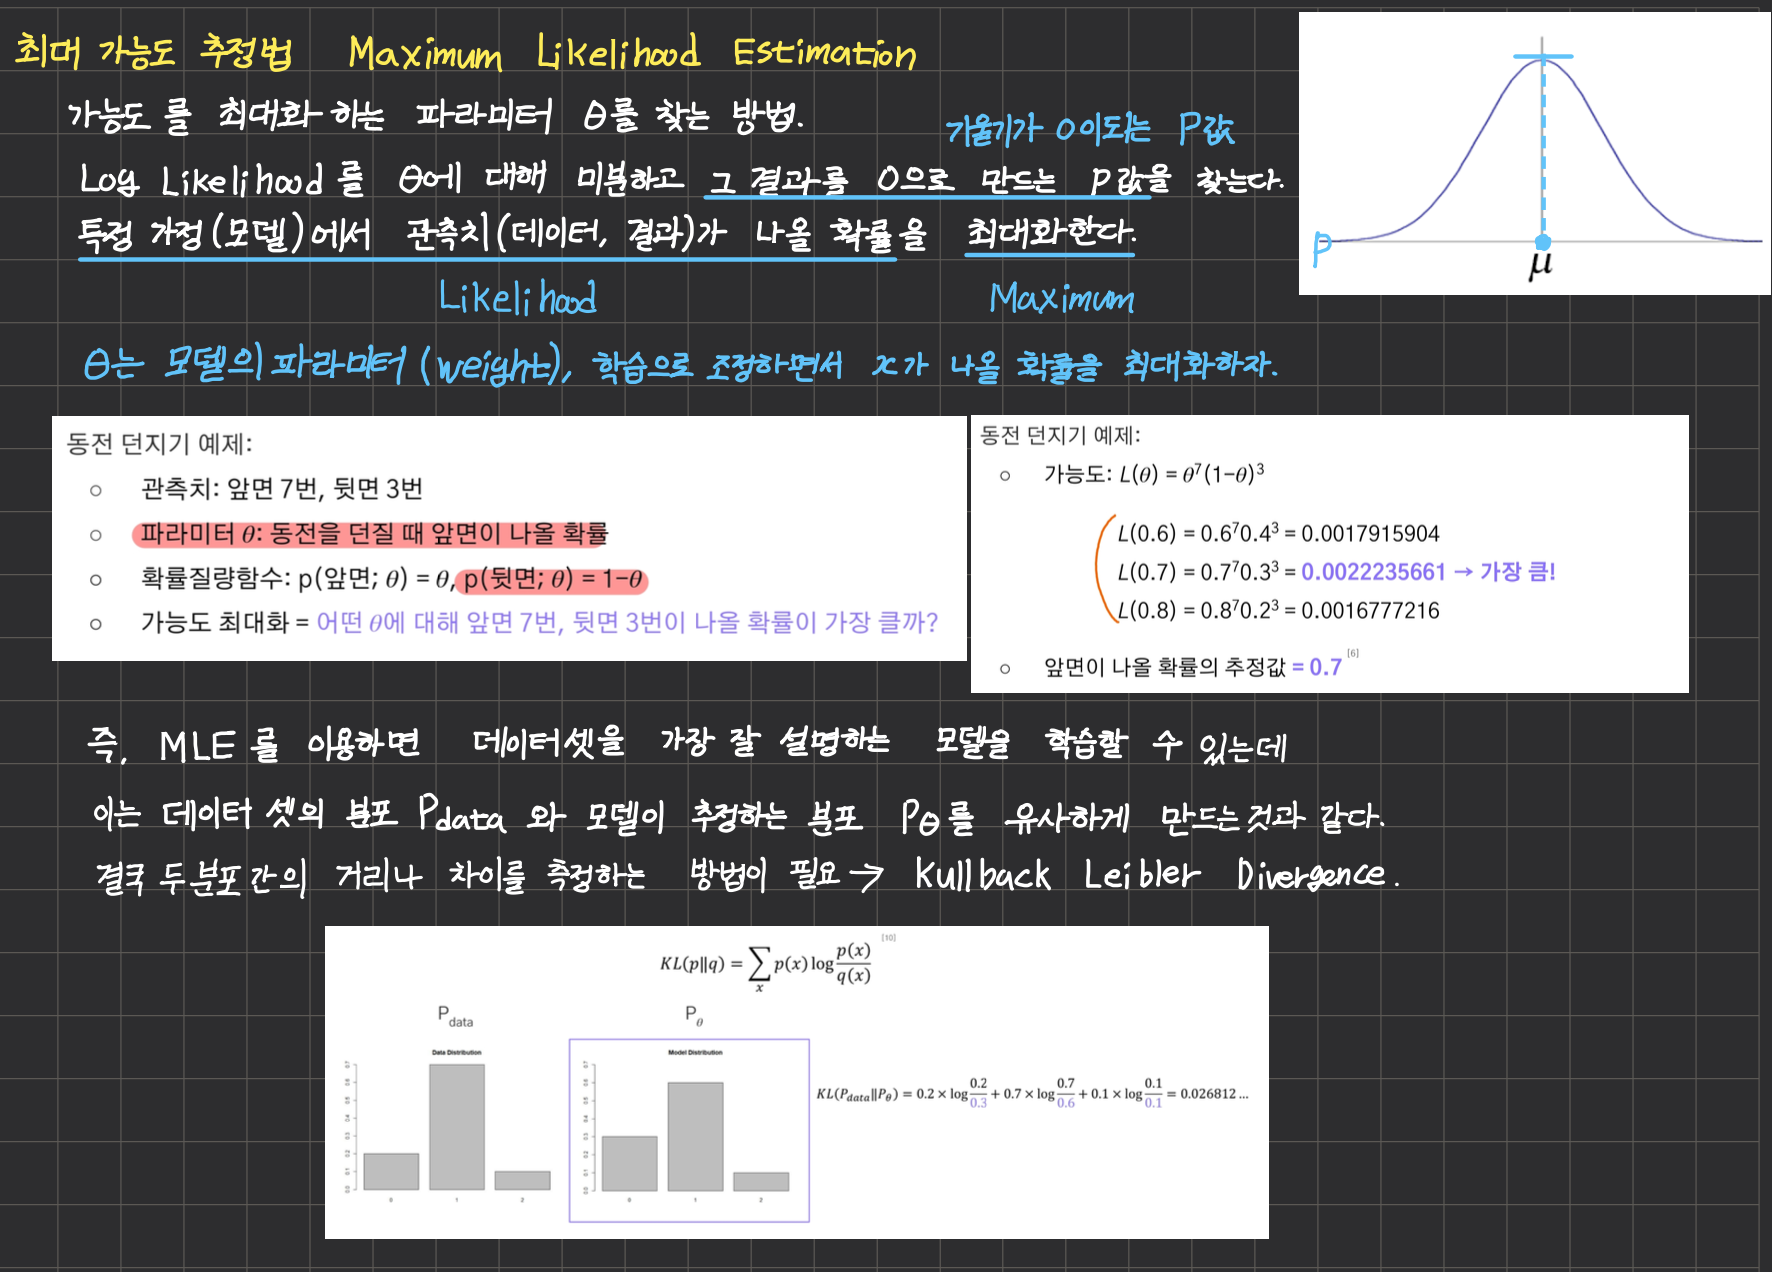 최대 가능도 추정법 Maximum Likelihood Estimation
가능도를 최대화 하는 파라미터 θ를 찾는 방법.
기울기가 0이되는 P값
Log Likelihood를 θ에 대해 미분하고 그 결과를 0으로 만드는 P값을 찾는다.
특정 가정(모델)에서 관측치(데이터, 결과)가 나올 확률을 최대화한다.
Likelihood Maximum
P
μ
θ는 모델의 파라미터(weight), 학습으로 조정하면서 x가 나올 확률을 최대화하자.
동전 던지기 예제:
○ 관측치: 앞면 7번, 뒷면 3번
○ 파라미터 θ: 동전을 던질 때 앞면이 나올 확률
○ 확률질량함수: p(앞면; θ) = θ, p(뒷면; θ) = 1−θ
○ 가능도 최대화 = 어떤 θ에 대해 앞면 7번, 뒷면 3번이 나올 확률이 가장 클까?
동전 던지기 예제:
○ 가능도: L(θ) = θ⁷(1−θ)³
L(0.6) = 0.6⁷0.4³ = 0.0017915904
L(0.7) = 0.7⁷0.3³ = 0.0022235661 → 가장 큼!
L(0.8) = 0.8⁷0.2³ = 0.0016777216
○ 앞면이 나올 확률의 추정값 = 0.7 [6]
즉, MLE를 이용하면 데이터셋을 가장 잘 설명하는 모델을 학습할 수 있는데
이는 데이터 셋의 분포 Pdata 와 모델이 추정하는 분포 Pθ를 유사하게 만드는것과 같다.
결국 두분포간의 거리나 차이를 측정하는 방법이 필요 → Kullback Leibler Divergence.
KL(p||q) = ∑x p(x) log p(x)/q(x) [10]
Pdata
Pθ
Data Distribution
0.7
0.6
0.5
0.4
0.3
0.2
0.1
0.0
0 1 2
Model Distribution
0.7
0.6
0.5
0.4
0.3
0.2
0.1
0.0
0 1 2
KL(Pdata||Pθ) = 0.2 × log 0.2/0.3 + 0.7 × log 0.7/0.6 + 0.1 × log 0.1/0.1 = 0.026812 ...